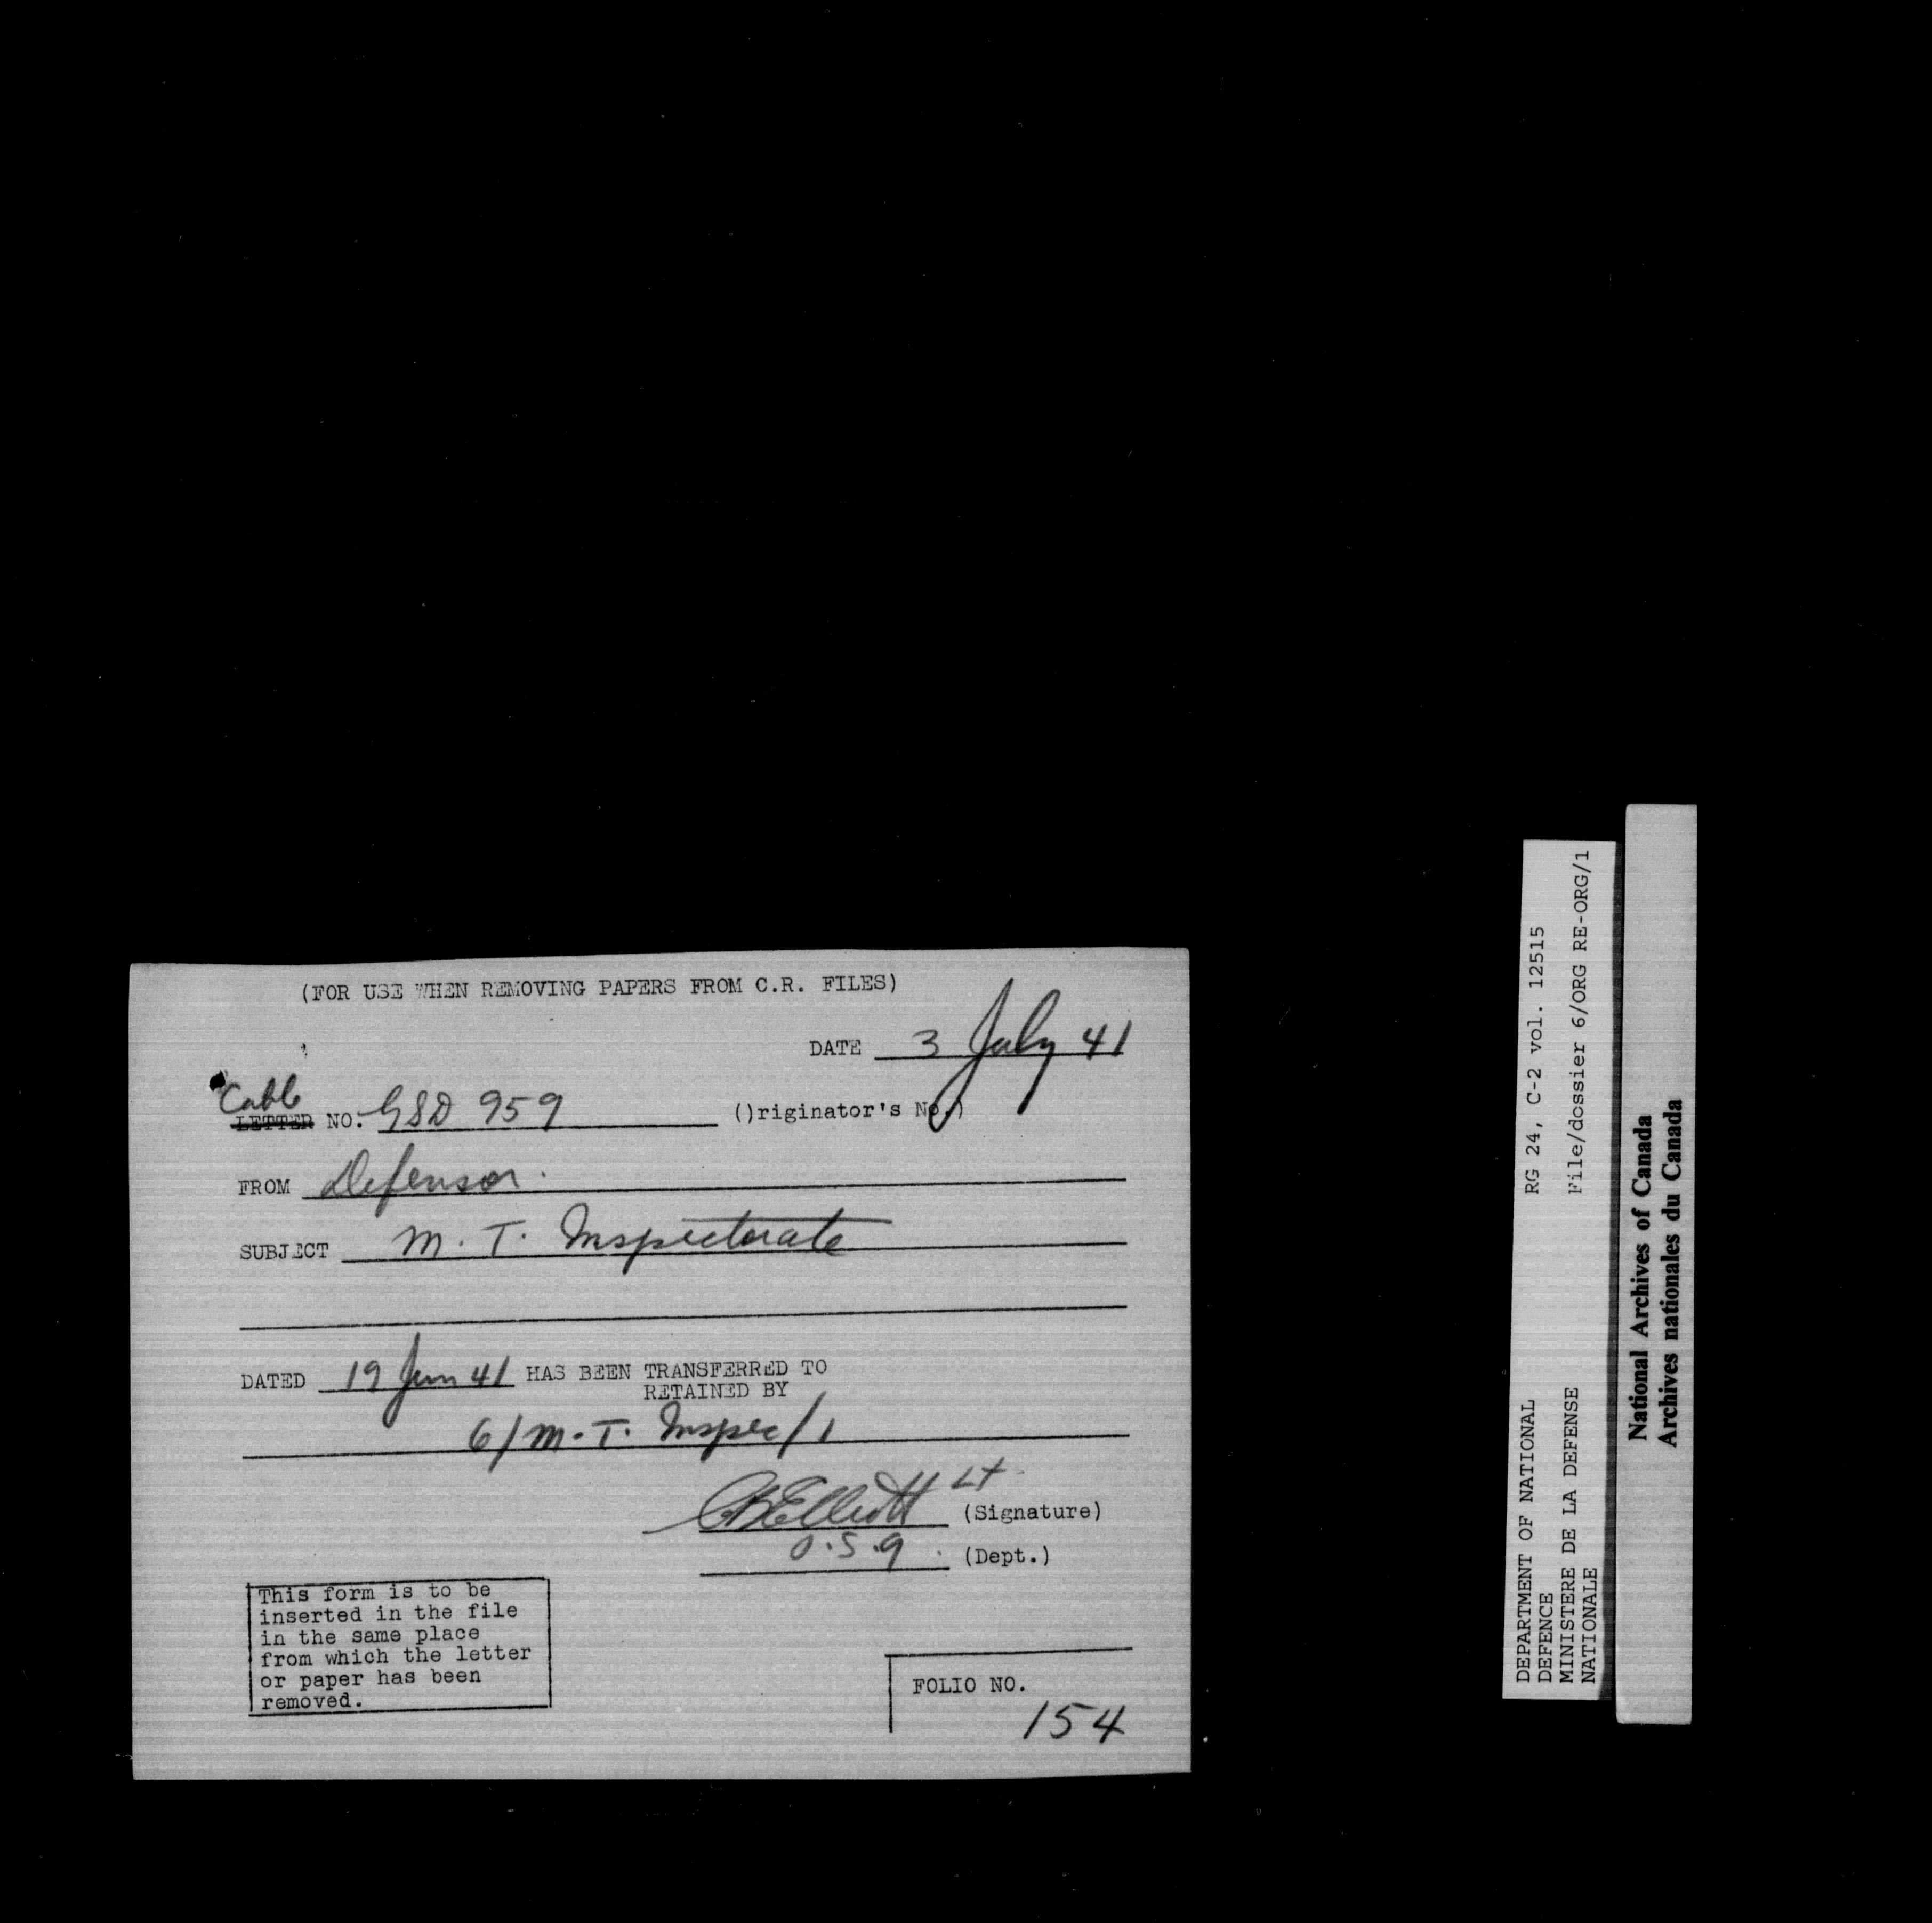 (FOR USE WHEN REMOVING PAPERS FROM C.R. FILES)
DATE 3 July 41
Cable
LETTER NO. GSD 959 ()riginator's No.)
FROM Defensor.
SUBJECT M. T. Inspectorate
DATED 19 Jun 41 HAS BEEN TRANSFERRED TO
RETAINED BY
6/M.T. Inspec/1
CBElliott Lt. (Signature)
(Dept.)
This form is to be
inserted in the file
in the same place
from which the letter
or paper has been
removed.
FOLIO NO.
154
DEPARTMENT OF NATIONAL
DEFENCE
MINISTERE DE LA DEFENSE
NATIONALE
RG 24, C-2 vol. 12515
File/dossier 6/ORG RE-ORG/1
National Archives of Canada
Archives nationales du Canada